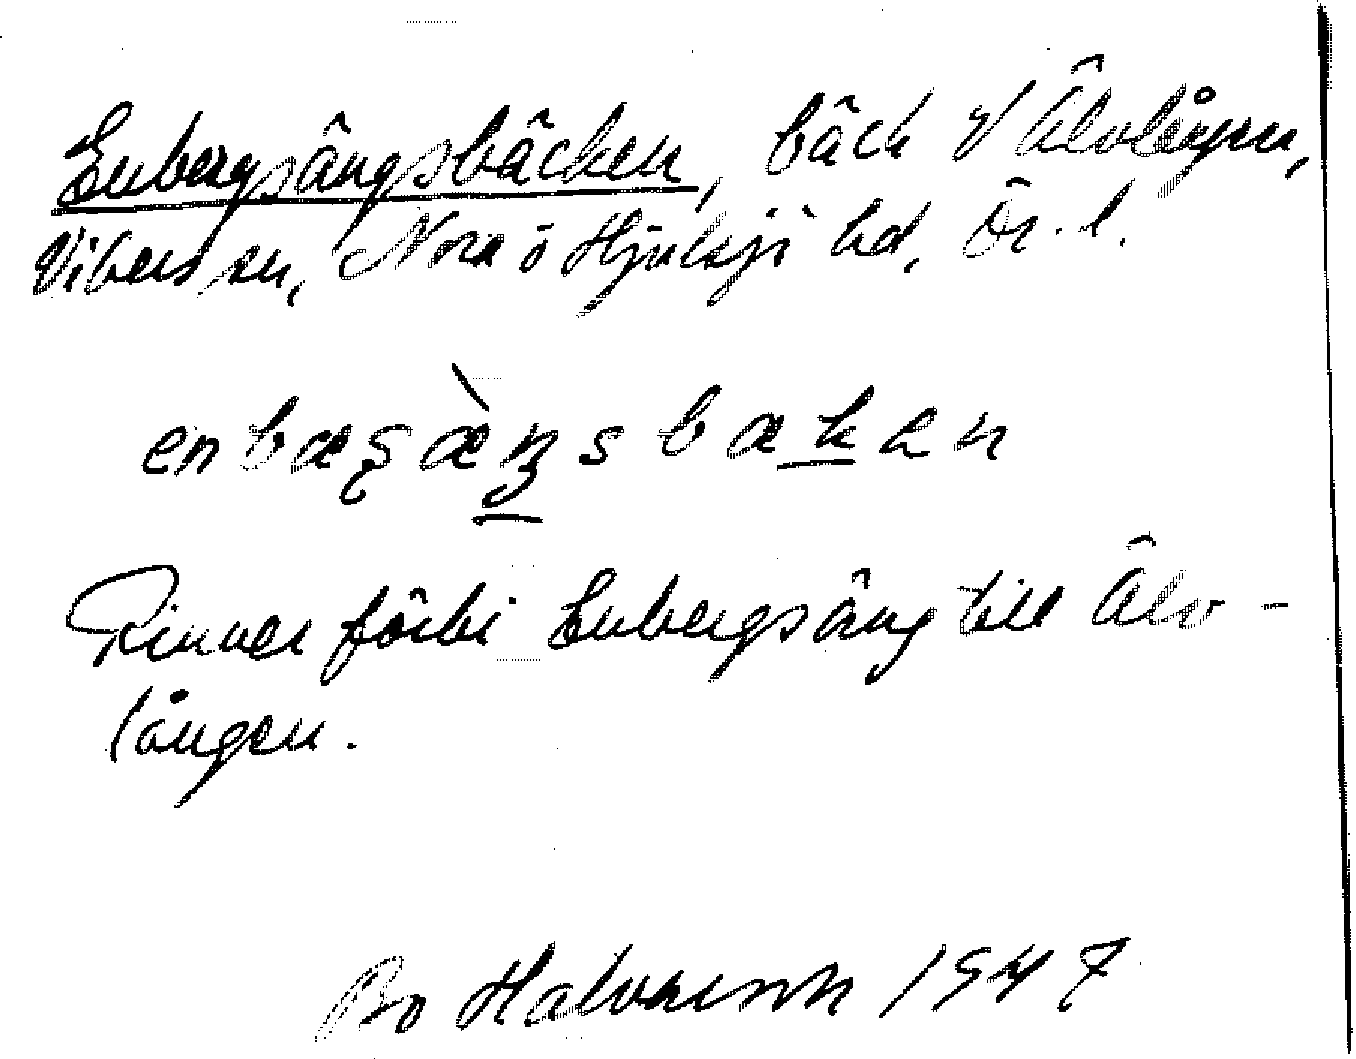 Enbergsängsbäcken, bäck V Älvlången,
Vikers sn, Nora o Hjulsjö hd, Ör. l.
Rinner förbi Enbergsäng till Älv-
lången.
Bo Halvarson 1947